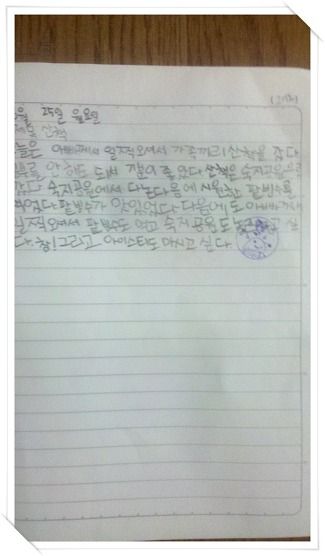 월 25일 월요일
제목 산책
늘은 아빠께서 일찍오셔서 가족끼리 산책을 갔다.
를 안 해도 되서 기분이 좋았다 산책은 숙지공원으로
갔다 숙지공원에서 다논다음에 시원한 팥빙수를
먹었다 팥빙수가 맛있었다 다음에도 아빠께서
일찍오셔서 팥빙수도 먹고 숙지공원도 싶
다. 참! 그리고 아이스티도 마시고 싶다